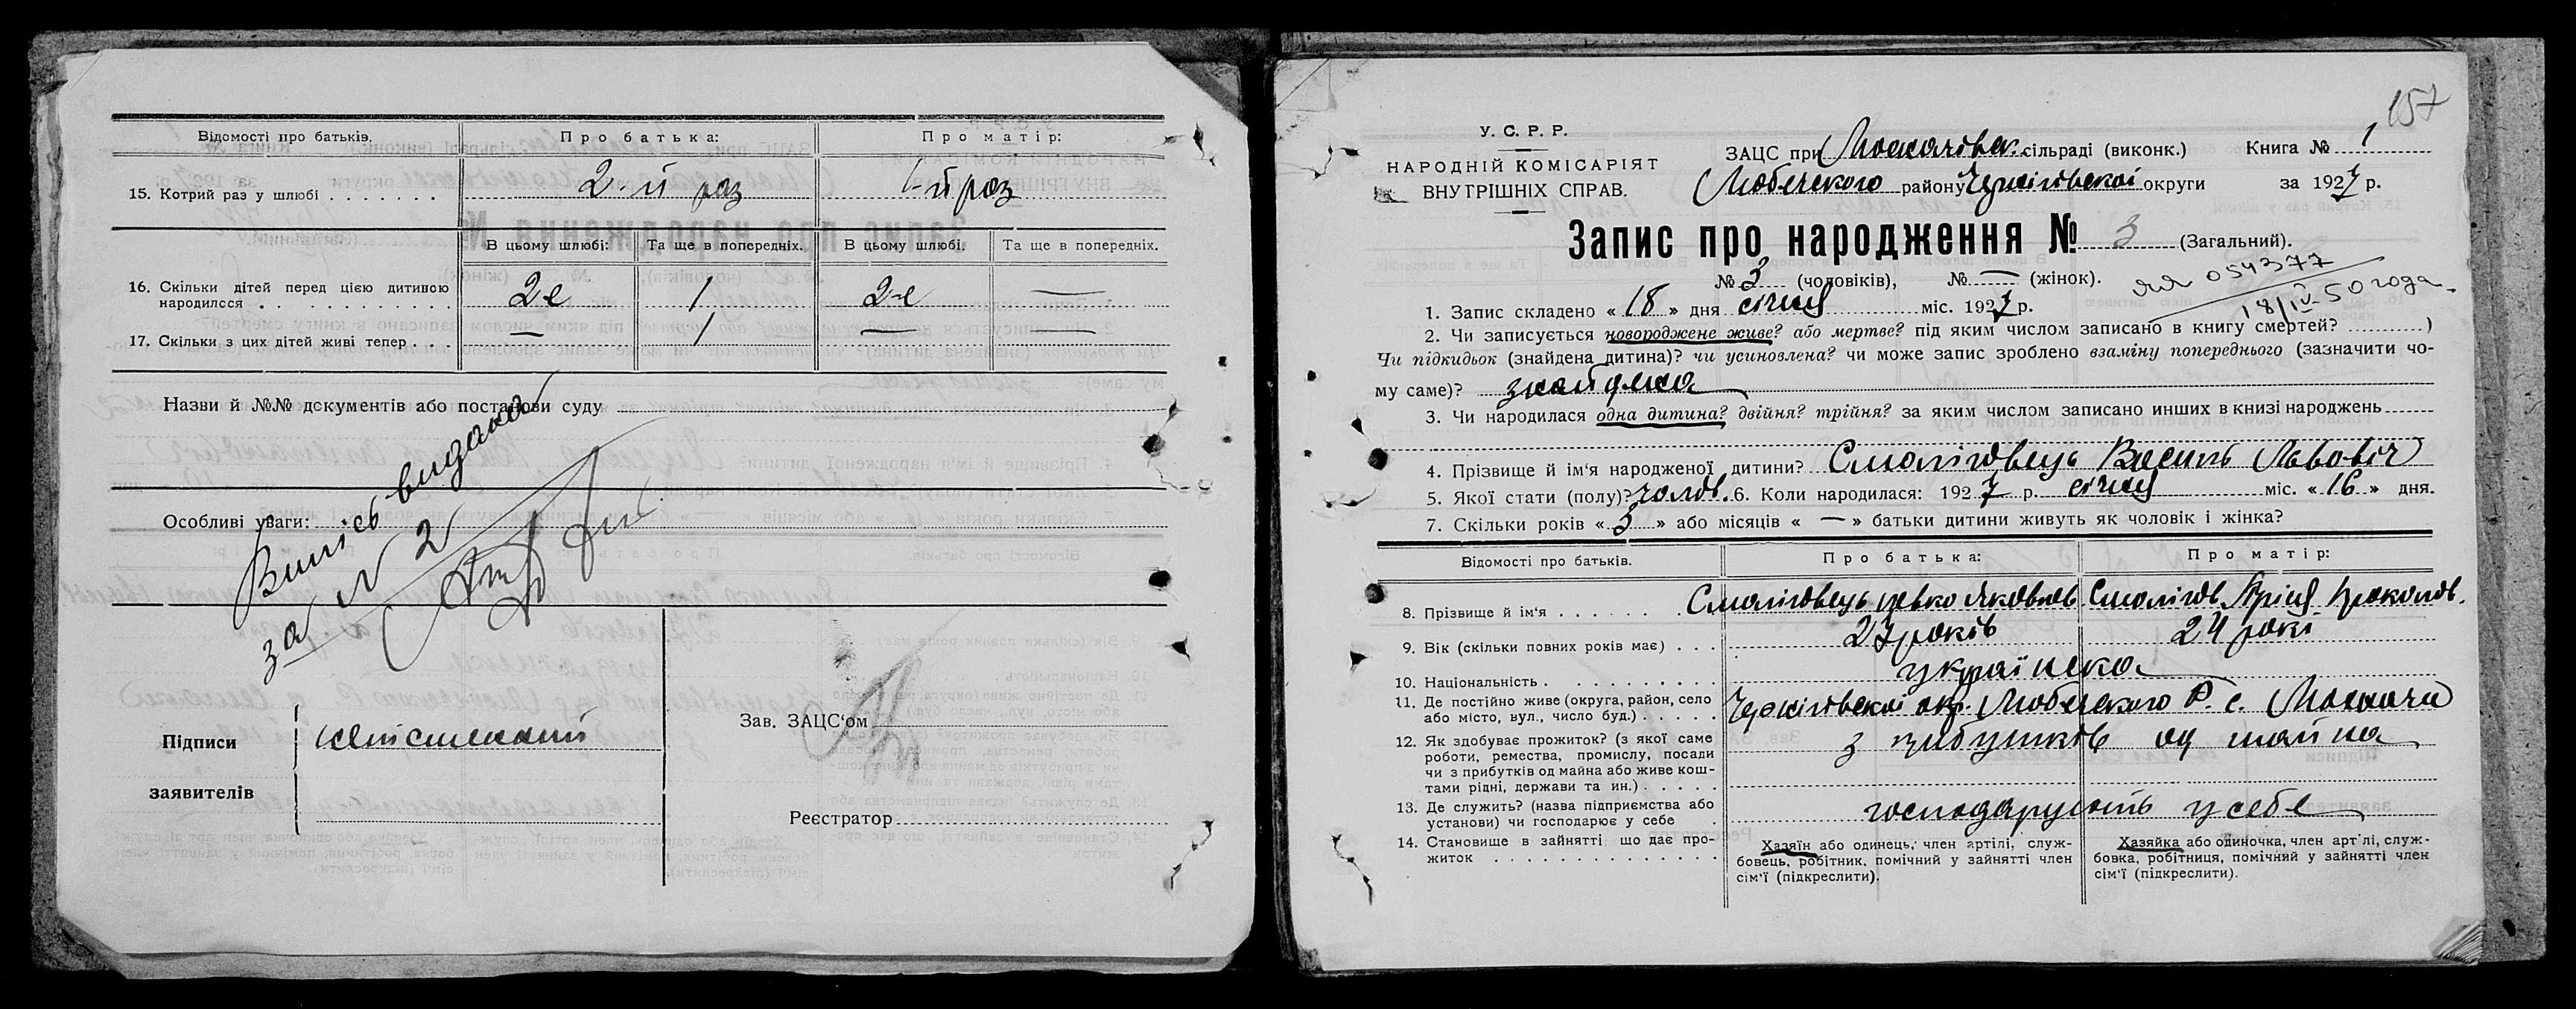 Відомості про батьків. Про батька: Про матір:
15. Котрий раз у шлюбі 2-й раз 1-й раз
В цьому шлюбі: Та ще в попередніх. В цьому шлюбі. Та ще в попередніх.
16. Скільки дітей перед цією дитиною
народилося 2-е 1 2-е —
17. Скільки з цих дітей живі тепер — 1 — —
Назви й №№ документів або постанови суду
Особливі уваги:
Випісь видана
за № 2
Підписи
заявителів
неписьменний
Зав. ЗАЦС'ом
Реєстратор
157
У. С. Р. Р.
НАРОДНІЙ КОМІСАРІЯТ
ВНУТРІШНІХ СПРАВ.
ЗАЦС при сільраді (виконк.) Книга № 1
Любечского району Чернігівської округи за 1927 р.
Запис про народження № 3 (Загальний).
№ 3 (чоловіків), № — (жінок).
054377
18/IV-50 года.
1. Запис складено « 18 » дня січня міс. 1927 р.
2. Чи записується новороджене живе? або мертве? під яким числом записано в книгу смертей? )
Чи підкидьок (знайдена дитина)? чи усиновлена? чи може запис зроблено взаміну попереднього (зазначити чо-
му саме)?
3. Чи народилася одна дитина? двійня? трійня? за яким числом записано инших в книзі народжень
4. Прізвище й ім'я народженої дитини? Смоліговець Василь Львовіч
5. Якої стати (полу)? чолов. 6. Коли народилася: 1927 р. січня міс. « 16 » дня.
7. Скільки років « 3 » або місяців « — » батьки дитини живуть як чоловік і жінка?
Відомості про батьків. Про батька: Про матір:
8. Прізвище й ім'я Смоліговець Левко Яковлев. Смолігов.
9. Вік (скільки повних років має) 27 років 24 рокі
10. Національність українска
11. Де постійно живе (округа, район, село
або місто, вул., число буд.) Чернігівскої окр. Любечского Р. с.
12. Як здобуває прожиток? (з якої саме
роботи, ремества, промислу, посади
чи з прибутків од майна або живе кош-
тами рідні, держави та ин.) з прибутків од майна
13. Де служить? (назва підприємства або
установи) чи господарює у себе господарують у себе
14. Становище в зайнятті що дає про-
житок
Хазяїн або одинець, член артілі, служ-
бовець, робітник, помічний у зайнятті член
сім'ї (підкреслити).
Хазяйка або одиночка, член артілі, служ-
бовка, робітниця, помічний у зайнятті член
сім'ї (підкреслити).